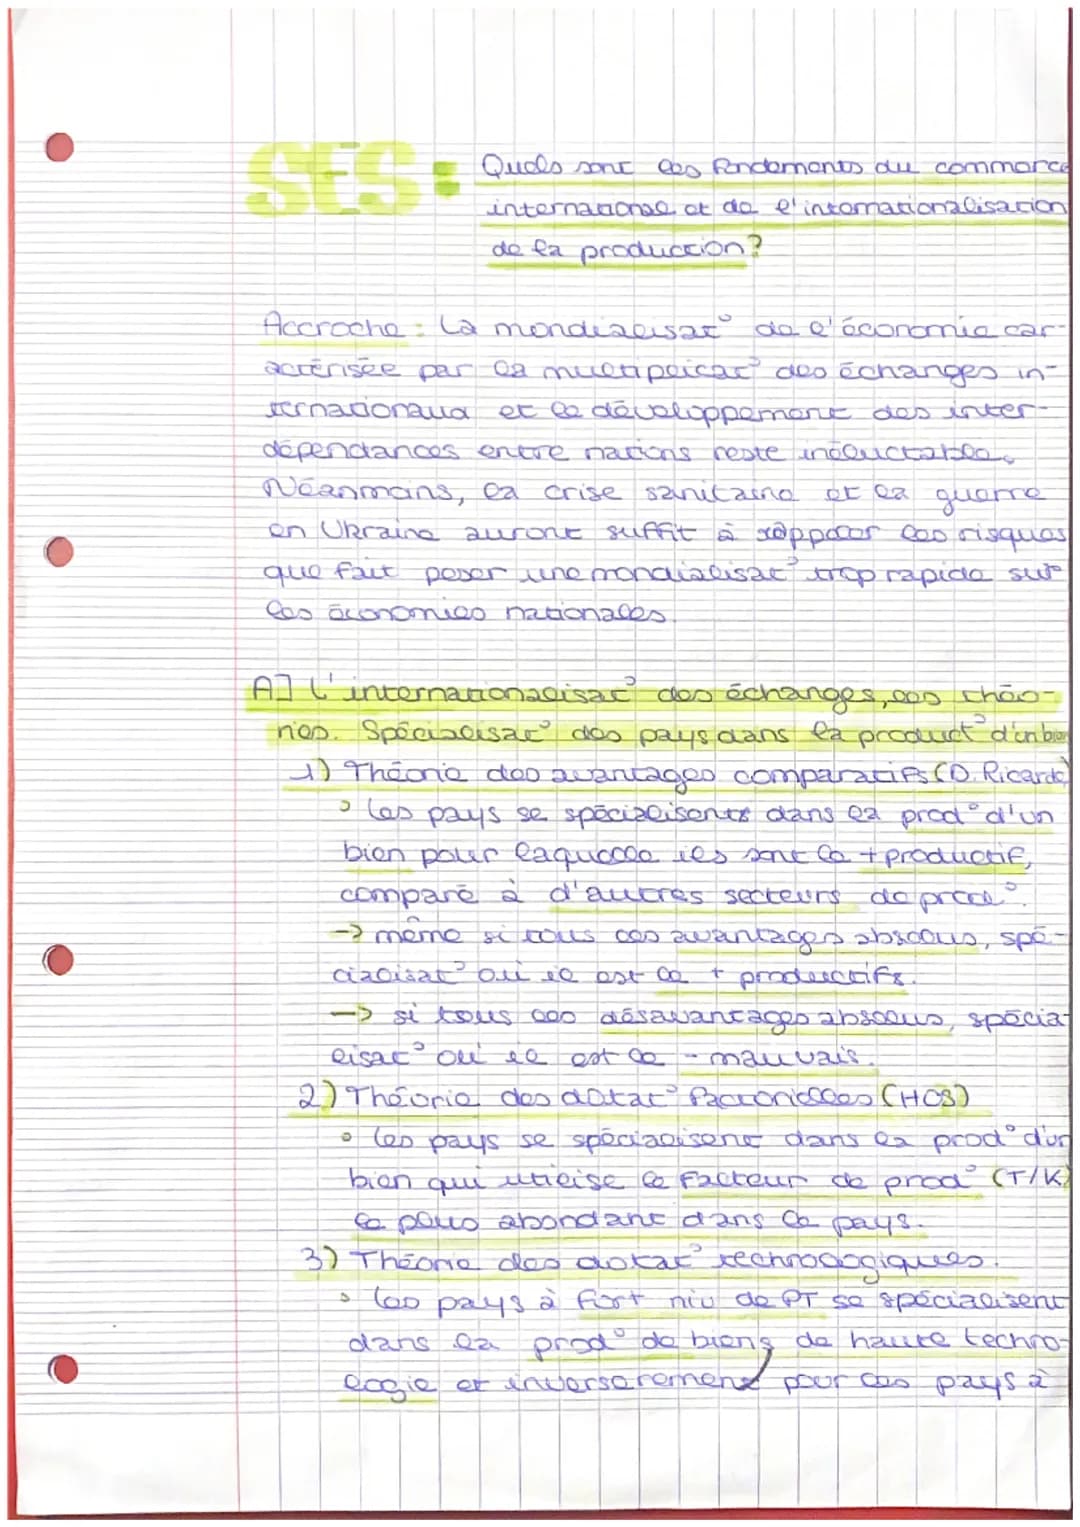 SES : Quels sont les fondements du commerce
international et de l'internationalisation
de la production?
Accroche : La mondialisat° de l'économie car-
actérisée par la multiplicat° des échanges in-
ternationaux et le développement des inter-
dépendances entre nations reste inéluctable.
Néanmoins, la crise sanitaire et la guerre
en Ukraine auront suffit à rappeler les risques
que fait peser une mondialisat° trop rapide sur
les économies nationales.
A] L'internationalisat° des échanges, les théo-
ries. Spécialisat° des pays dans la product° d'un bien
1) Théorie des avantages comparatifs (D. Ricardo)
° les pays se spécialisents dans la prod° d'un
bien pour laquelle ils sont le + productif,
comparé à d'autres secteurs de prod°.
-> même si tous les avantages absolus, spé-
cialisat° où il est le + productifs.
-> si tous les désavantages absolus, spécia-
lisat° où il est le - mauvais.
2) Théorie des dotat° factorielles (HOS)
° les pays se spécialisent dans la prod° d'un
bien qui utilise le facteur de prod° (T/K)
le plus abondant dans le pays.
3) Théorie des dotat° technologiques.
° les pays à fort niv de PT se spécialisent
dans la prod° de biens de haute techno-
logie et inversement pour les pays à